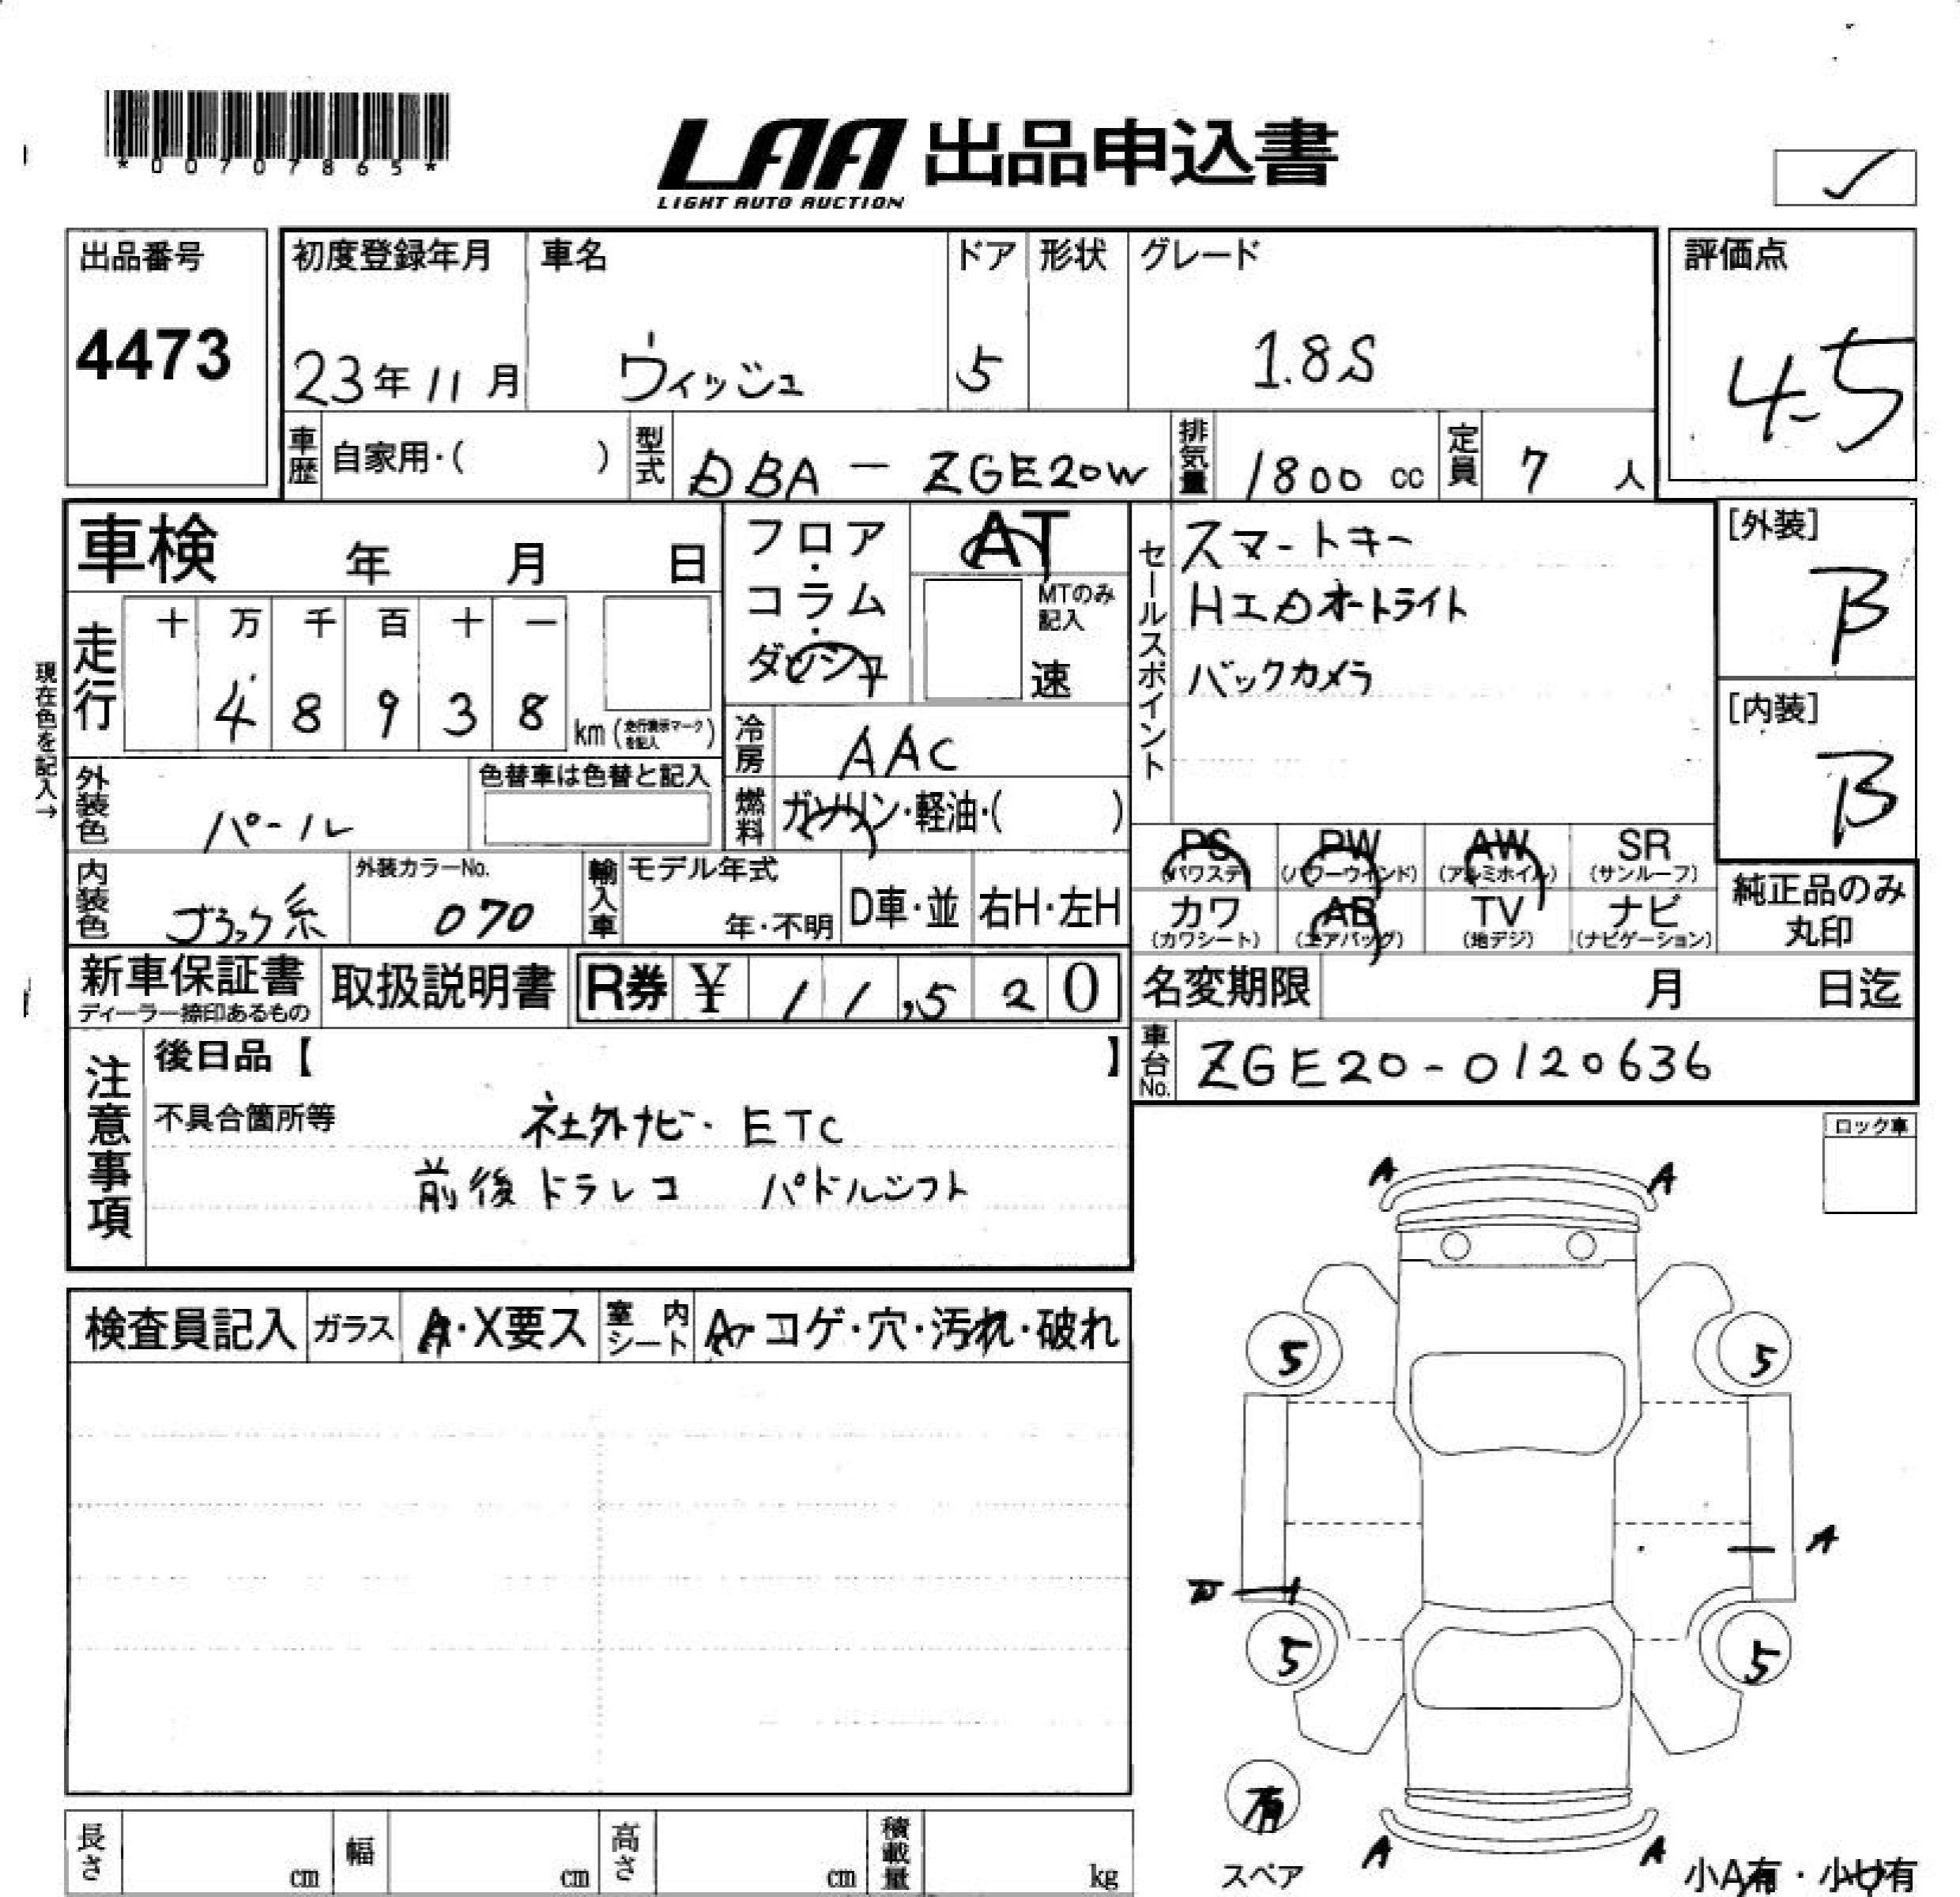 *00707865*
LAA 出品申込書
LIGHT AUTO AUCTION
出品番号
4473
初度登録年月
23年11月
車名
ウィッシュ
ドア
5
形状
グレード
1.8S
評価点
4.5
車歴 自家用・( )
型式 DBA - ZGE20W
排気量 1800 cc
定員 7 人
車検 年 月 日
フロア・コラム・ダッシュ
AT
MTのみ記入
速
セールスポイント
スマートキー
HIDオートライト
バックカメラ
[外装]
B
[内装]
B
現在色を記入→
走行 十 万 千 百 十 一
4 8 9 3 8 km (走行表示マークを記入)
冷房 AAC
外装色 パール
色替車は色替と記入
燃料 ガソリン・軽油・( )
PS (パワステ) PW (パワーウインド) AW (アルミホイル) SR (サンルーフ)
カワ (カワシート) AB (エアバッグ) TV (地デジ) ナビ (ナビゲーション)
純正品のみ丸印
内装色 ブラック系
外装カラーNo. 070
輸入車 モデル年式 年・不明 D車・並 右H・左H
新車保証書
ディーラー捺印あるもの
取扱説明書
R券 ¥ 11,520
名変期限 月 日迄
車台No. ZGE20-0120636
注意事項
後日品【 】
不具合箇所等
社外ナビ・ETC
前後ドラレコ パドルシフト
ロック車
検査員記入 ガラス A・X要ス 室内シート A・コゲ・穴・汚れ・破れ
A A
5 5
A
5 5
有
スペア
A A
小A有・小U有
長さ cm 幅 cm 高さ cm 積載量 kg